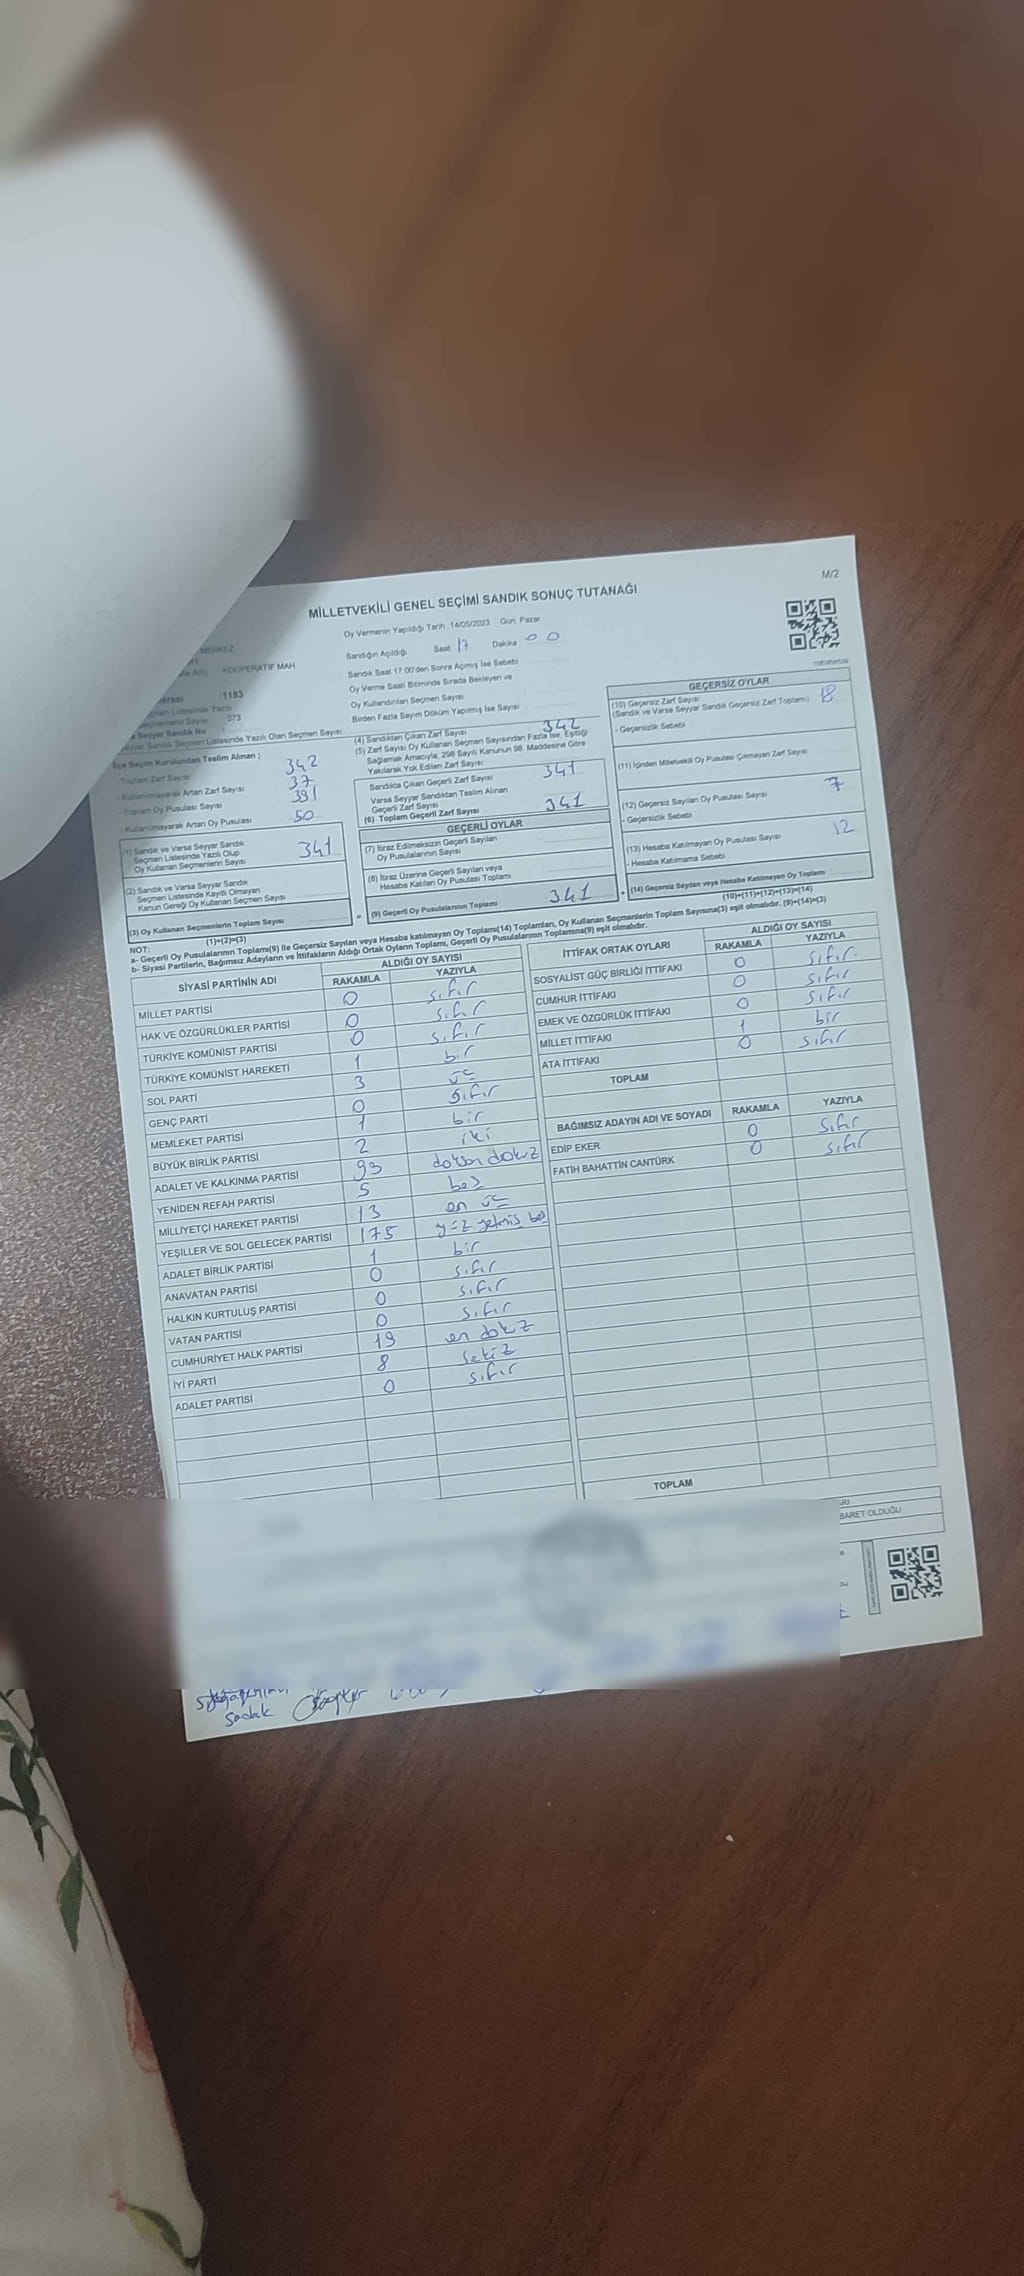 M/2
MİLLETVEKİLİ GENEL SEÇİMİ SANDIK SONUÇ TUTANAĞI
MERKEZ
KOOPERATİF MAH
:1183
373
Seyyar Sandık No
Seyyar Sandık Seçmen Listesinde Yazılı Olan Seçmen Sayısı
Oy Vermenin Yapıldığı Tarih 14/05/2023 Gün Pazar
Sandığın Açıldığı Saat 17 Dakika 00
Sandık Saat 17:00'den Sonra Açılmış İse Sebebi
Oy Verme Saati Bitiminde Sırada Bekleyen ve
Oy Kullandırılan Seçmen Sayısı
Birden Fazla Sayım Döküm Yapılmış İse Sayısı
İlçe Seçim Kurulundan Teslim Alınan ;
- Toplam Zarf Sayısı 342
- Kullanılmayarak Artan Zarf Sayısı 37
- Toplam Oy Pusulası Sayısı 391
- Kullanılmayarak Artan Oy Pusulası 50
(1) Sandık ve Varsa Seyyar Sandık
Seçmen Listesinde Yazılı Olup
Oy Kullanan Seçmenlerin Sayısı 341
(2) Sandık ve Varsa Seyyar Sandık
Seçmen Listesinde Kayıtlı Olmayan
Kanun Gereği Oy Kullanan Seçmen Sayısı
(3) Oy Kullanan Seçmenlerin Toplam Sayısı
(1)+(2)=(3)
(4) Sandıktan Çıkan Zarf Sayısı 342
(5) Zarf Sayısı Oy Kullanan Seçmen Sayısından Fazla İse, Eşitliği
Sağlamak Amacıyla, 298 Sayılı Kanunun 98. Maddesine Göre
Yakılarak Yok Edilen Zarf Sayısı
Sandıkda Çıkan Geçerli Zarf Sayısı 341
Varsa Seyyar Sandıktan Teslim Alınan
Geçerli Zarf Sayısı
(6) Toplam Geçerli Zarf Sayısı 341
GEÇERLİ OYLAR
(7) İtiraz Edilmeksizin Geçerli Sayılan
Oy Pusulalarının Sayısı
(8) İtiraz Üzerine Geçerli Sayılan veya
Hesaba Katılan Oy Pusulası Toplamı
(9) Geçerli Oy Pusulalarının Toplamı 341
GEÇERSİZ OYLAR
(10) Geçersiz Zarf Sayısı 18
(Sandık ve Varsa Seyyar Sandık Geçersiz Zarf Toplamı)
- Geçersizlik Sebebi
(11) İçinden Milletvekili Oy Pusulası Çıkmayan Zarf Sayısı
(12) Geçersiz Sayılan Oy Pusulası Sayısı 7
- Geçersizlik Sebebi
(13) Hesaba Katılmayan Oy Pusulası Sayısı 12
- Hesaba Katılmama Sebebi
(14) Geçersiz Sayılan veya Hesaba Katılmayan Oy Toplamı
(10)+(11)+(12)+(13)=(14)
NOT:
a- Geçerli Oy Pusulalarının Toplamı(9) ile Geçersiz Sayılan veya Hesaba katılmayan Oy Toplamı(14) Toplamları, Oy Kullanan Seçmenlerin Toplam Sayısına(3) eşit olmalıdır. (9)+(14)=(3)
b- Siyasi Partilerin, Bağımsız Adayların ve İttifakların Aldığı Ortak Oyların Toplamı, Geçerli Oy Pusulalarının Toplamına(9) eşit olmalıdır.
SİYASİ PARTİNİN ADI ALDIĞI OY SAYISI
RAKAMLA YAZIYLA
MİLLET PARTİSİ 0 sıfır
HAK VE ÖZGÜRLÜKLER PARTİSİ 0 sıfır
TÜRKİYE KOMÜNİST PARTİSİ 0 sıfır
TÜRKİYE KOMÜNİST HAREKETİ 1 bir
SOL PARTİ 3 üç
GENÇ PARTİ 0 sıfır
MEMLEKET PARTİSİ 1 bir
BÜYÜK BİRLİK PARTİSİ 2 iki
ADALET VE KALKINMA PARTİSİ 99 doksan dokuz
YENİDEN REFAH PARTİSİ 5 beş
MİLLİYETÇİ HAREKET PARTİSİ 13 on üç
YEŞİLLER VE SOL GELECEK PARTİSİ 175 yüz yetmiş beş
ADALET BİRLİK PARTİSİ 1 bir
ANAVATAN PARTİSİ 0 sıfır
HALKIN KURTULUŞ PARTİSİ 0 sıfır
VATAN PARTİSİ 0 sıfır
CUMHURİYET HALK PARTİSİ 19 on dokuz
İYİ PARTİ 8 sekiz
ADALET PARTİSİ 0 sıfır
İTTİFAK ORTAK OYLARI ALDIĞI OY SAYISI
RAKAMLA YAZIYLA
SOSYALİST GÜÇ BİRLİĞİ İTTİFAKI 0 sıfır
CUMHUR İTTİFAKI 0 sıfır
EMEK VE ÖZGÜRLÜK İTTİFAKI 0 sıfır
MİLLET İTTİFAKI 1 bir
ATA İTTİFAKI 0 sıfır
TOPLAM
BAĞIMSIZ ADAYIN ADI VE SOYADI RAKAMLA YAZIYLA
EDİP EKER 0 sıfır
FATİH BAHATTİN CANTÜRK 0 sıfır
TOPLAM
BARET OLDUĞU
sadak